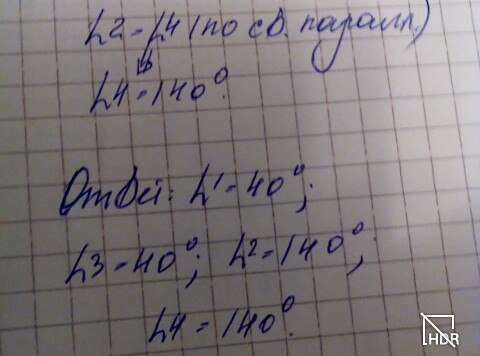 ∠2=∠4 (по св. паралл.)
∠4=140°.
Ответ: ∠1=40°;
∠3=40°; ∠2=140°;
∠4=140°.
HDR